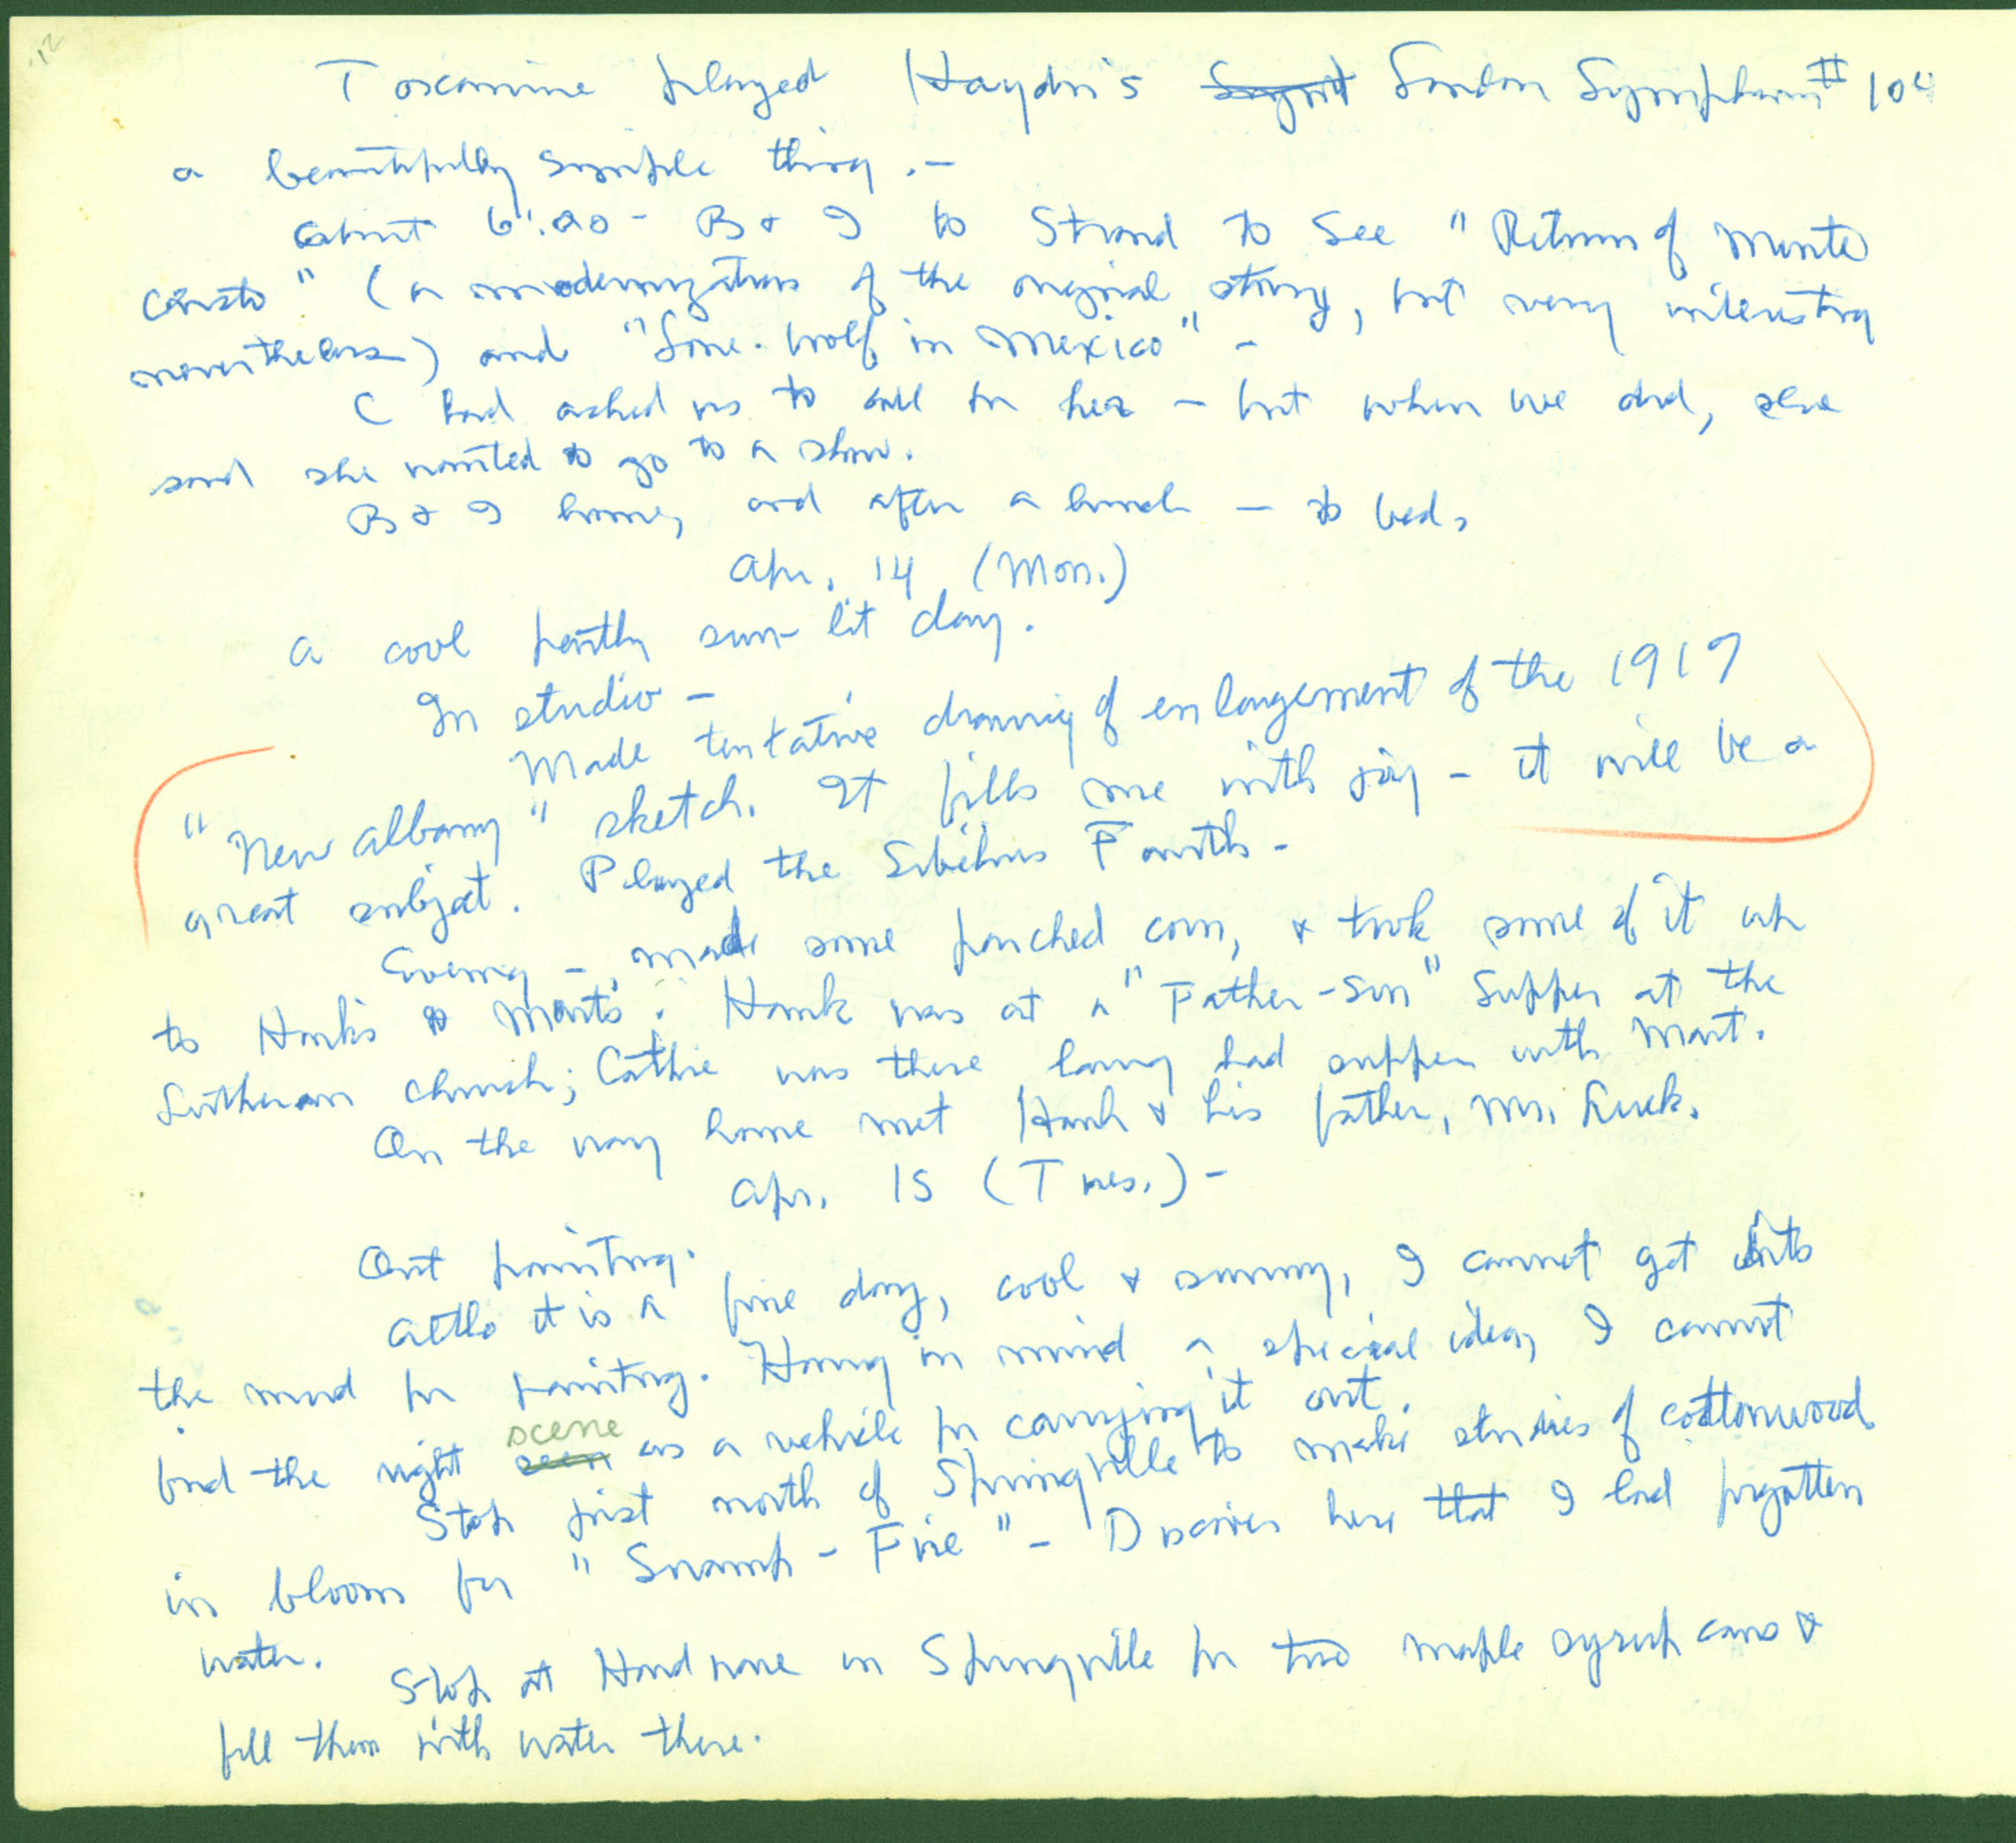 Toscanine played Haydn's Sympt London Symphony # 104
a beautifully simple thing. –
About 6:00 – B & I to Strand to see "Return of Monte
Cristo" (a modernization of the original story, but very interesting
nevertheless) and "Lone Wolf in Mexico" –
C had asked us to call for her – but when we did, she
said she wanted to go to a show.
B & I home, and after a lunch – to bed.
Apr. 14 (Mon.)
A cool partly sun-lit day.
In studio –
Made tentative drawing of enlargement of the 1917
"New Albany" sketch. It fills me with joy – it will be a
great subject. Played the Sibelius Fourth –
Evening – made some parched corn, & took some of it up
to Hank's & Mart's. Hank was at a "Father-Son" supper at the
Lutheran church; Cathie was there having had supper with Mart.
On the way home met Hank & his father, Mr.
Apr. 15 (Tues.) –
Out painting.
Altho it is a fine day, cool & sunny, I cannot get into
the mood for painting. Having in mind a special idea, I cannot
find the right seen scene as a vehicle for carrying it out.
Stop just north of Springville to make studies of cottonwood
in bloom for "Swamp-Fire" – Discover here that I had forgotten
water.
Stop at Hardware in Springville for two maple syrup cans &
fill them with water there.